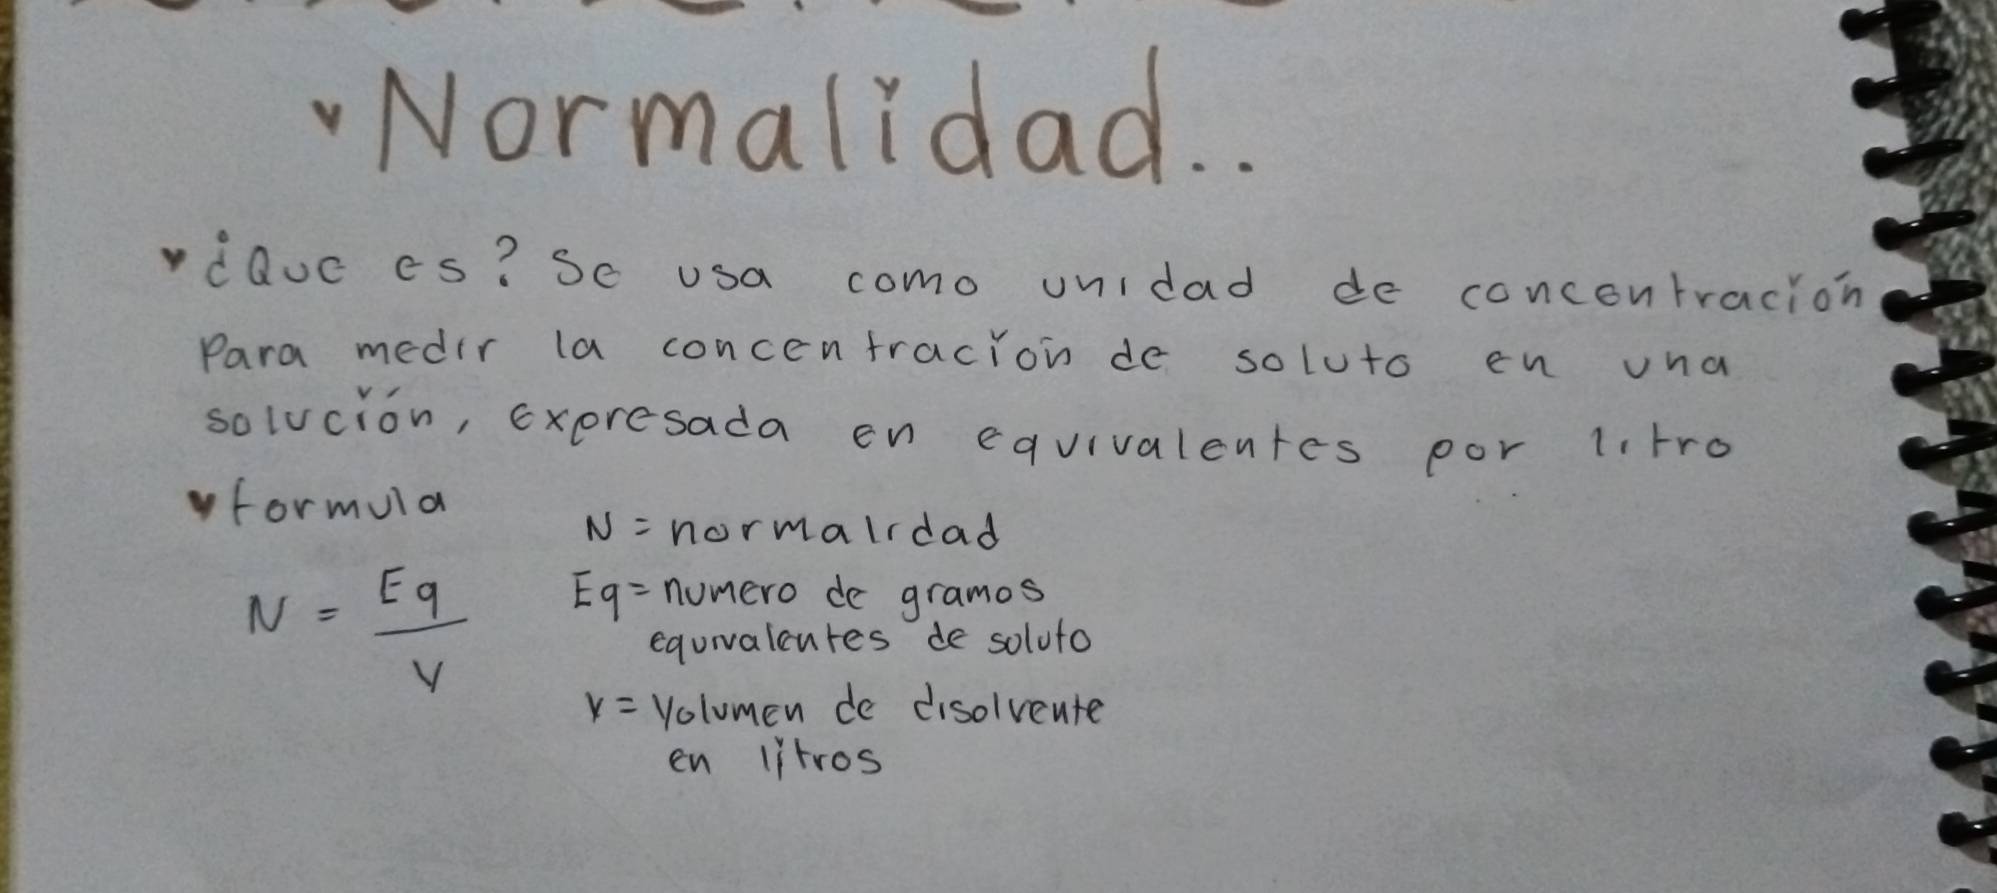 Normalidad..
¿Que es? Se usa como unidad de concentración
Para medir la concentración de soluto en una
solución, expresada en equivalentes por litro
formula
N = normalidad
N = Eq / V
Eq = numero de gramos
equivalentes de soluto
V = Volumen de disolvente
en litros